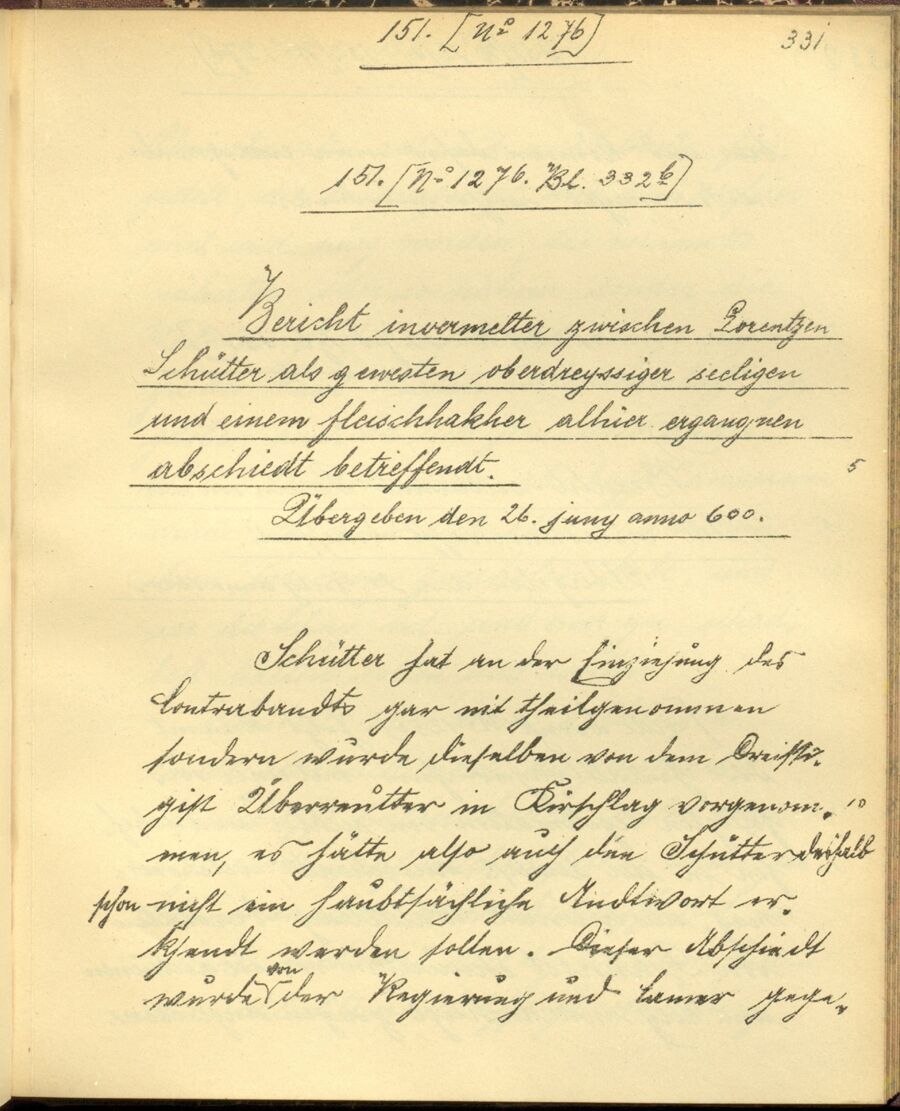 151. [No 1276]
331
151. [No 1276. Bl. 332b]
Bericht invermelter zwischen Lorentzen
Schütter als gewesten oberdreyssiger seeligen
und einem fleischhakher alhier ergangnen
abschiedt betreffendt.
5
Übergeben den 26. juny anno 600.
Schütter hat an der Einziehung des
Contrabandts gar nit theilgenommen
sondern wurde dieselben von dem Dreissi-
gist Überreutter in Kirschlag vorgenom-
10
men, es hätte also auch den Schütter deshalb
schon nicht ein haubtsächliche Andtwort er-
khendt werden sollen. Dieser Abschiedt
wurde von der Regierung und Camer gege-